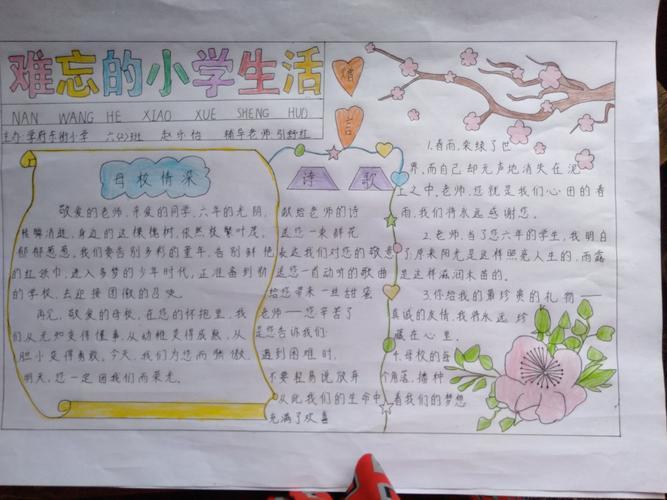 难忘的小学生活
NAN WANG HE XIAO XUE SHENG HUO
主办:学府东街小学 六(2)班 赵
辅导老师
赠言
母校情深
敬爱的老师,亲爱的同学,六年的光阴
转瞬消逝,身边的这棵槐树,依然枝繁叶茂,
郁郁葱葱,我们要告别多彩的童年,告别鲜艳
的红领巾,进入多梦的少年时代,正准备到新
的学校,去迎接国徽的召唤。
再见,敬爱的母校,在您的怀抱里,我
们从无知变得懂事,从幼稚变得成熟,从
胆小变得勇敢,今天,我们为您而骄傲,
明天,您一定因我们而荣光。
诗歌
献给老师的诗
送您一束鲜花
表达我们对您的敬意
送您一首动听的歌曲
给您带来一丝甜蜜
老师——您辛苦了
是您告诉我们
遇到困难时
不要轻易说放弃
从此我们的生命中
充满了欢喜
1.春雨,染绿了世
界,而自己却无声地消失在泥
土之中,老师,您就是我们心田的春
雨,我们将永远感谢您。
2.老师,当了您六年的学生,我明白
了原来阳光是这样照亮人生的,雨露
是这样滋润禾苗的。
3.你给我的最珍贵的礼物——
真诚的友情,我将永远珍
藏在心里。
4.母校的每
个角落,播种
着我们的梦想